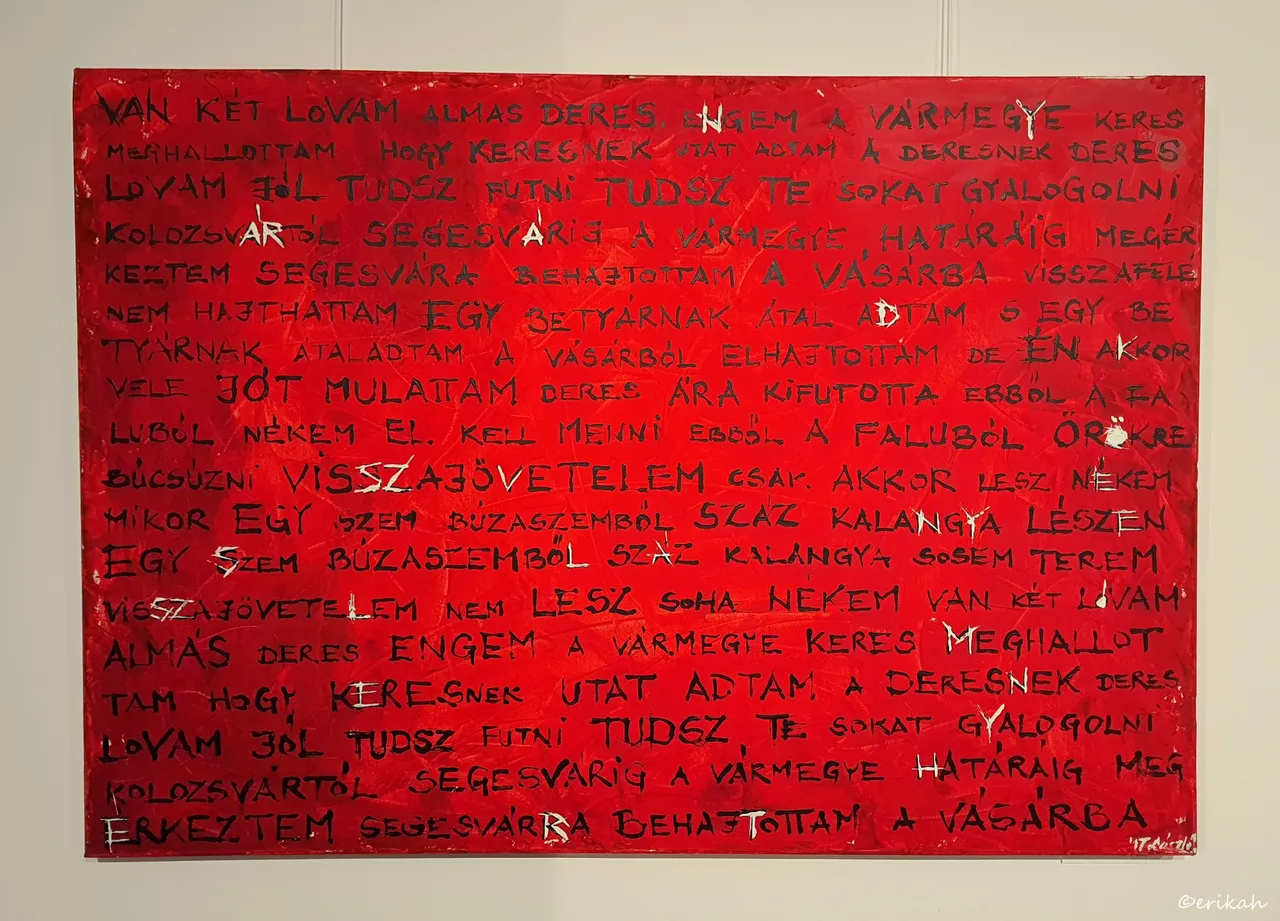 VAN KÉT LOVAM ALMAS DERES. ENGEM A VÁRMEGYE KERES
MEGHALLOTTAM HOGY KERESNEK UTAT ADTAM A DERESNEK DERES
LOVAM JÓL TUDSZ FUTNI TUDSZ TE SOKAT GYALOGOLNI
KOLOZSVÁRTÓL SEGESVÁRIG A VÁRMEGYE HATÁRÁIG MEGÉR
KEZTEM SEGESVÁRA BEHAJTOTTAM A VÁSÁRBA VISSZAFELÉ
NEM HAJTHATTAM EGY BETYÁRNAK ÁTAL ADTAM S EGY BE
TYÁRNAK ÁTALADTAM A VÁSÁRBÓL ELHAJTOTTAM DE ÉN AKKOR
VELE JÓT MULATTAM DERES ÁRA KIFUTOTTA EBBŐL A FA
LUBÓL NÉKEM EL KELL MENNI EBBŐL A FALUBÓL ÖRÖKRE
BÚCSÚZNI VISSZAJÖVETELEM CSAK AKKOR LESZ NÉKEM
MIKOR EGY SZEM BÚZASZEMBŐL SZÁZ KALANGYA LÉSZEN
EGY SZEM BÚZASZEMBŐL SZÁZ KALANGYA SOSEM TEREM
VISSZAJÖVETELEM NEM LESZ SOHA NÉKEM VAN KÉT LOVAM
ALMÁS DERES ENGEM A VÁRMEGYE KERES MEGHALLOT
TAM HOGY KERESNEK UTAT ADTAM A DERESNEK DERES
LOVAM JÓL TUDSZ FUTNI TUDSZ TE SOKAT GYALOGOLNI
KOLOZSVÁRTÓL SEGESVÁRIG A VÁRMEGYE HATÁRÁIG MEG
ERKEZTEM SEGESVÁRRA BEHAJTOTTAM A VÁSÁRBA
©erikah